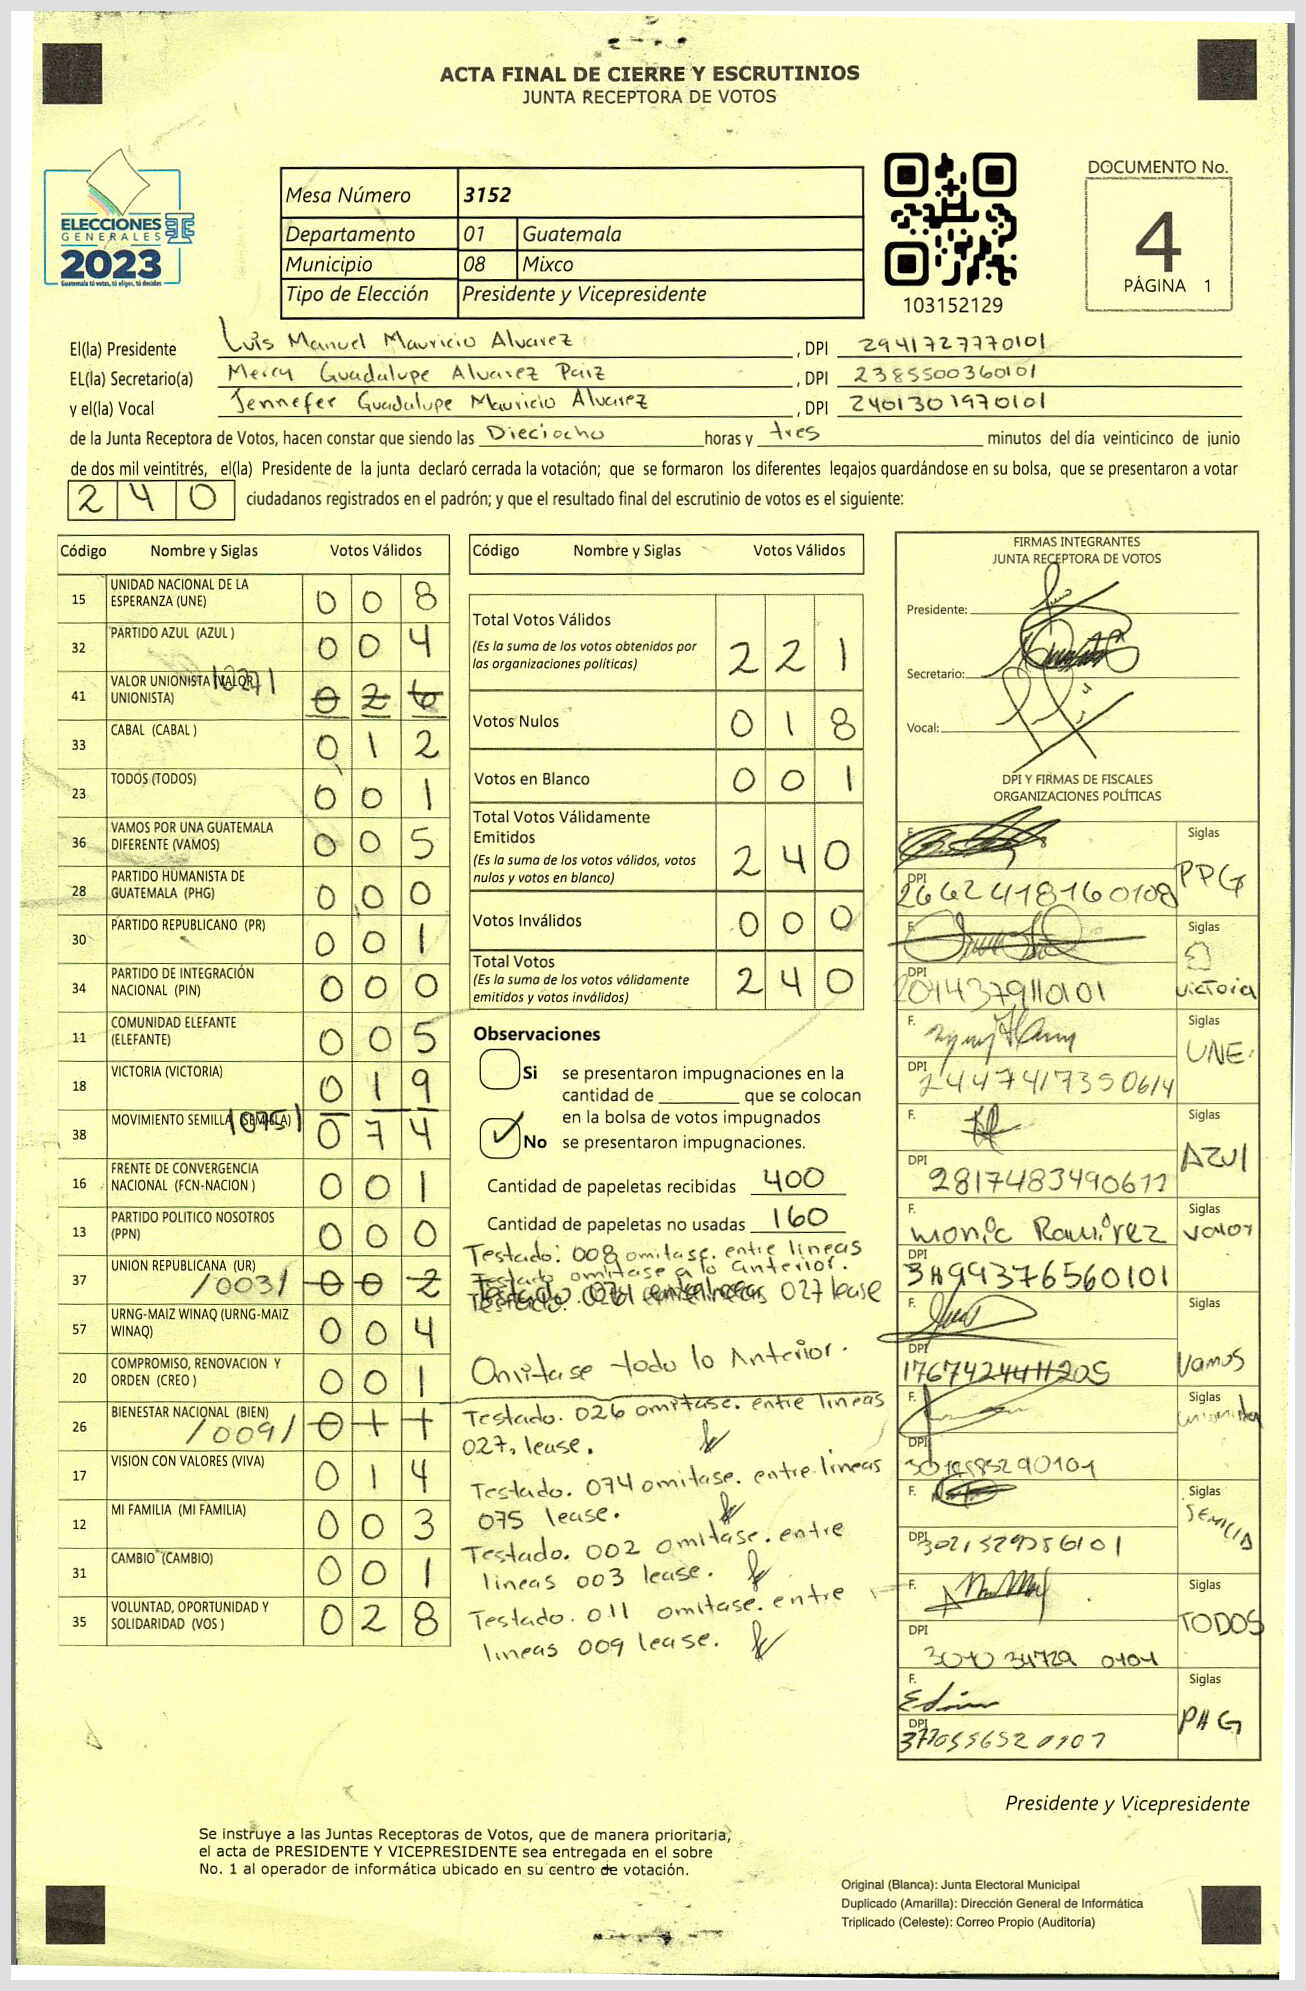 ACTA FINAL DE CIERRE Y ESCRUTINIOS
JUNTA RECEPTORA DE VOTOS
ELECCIONES
GENERALES
2023
Guatemala tú votas, tú eliges, tú decides
Mesa Número 3152
Departamento 01 Guatemala
Municipio 08 Mixco
Tipo de Elección Presidente y Vicepresidente
103152129
DOCUMENTO No.
4
PÁGINA 1
El(la) Presidente Luis Manuel Mauricio Alvarez , DPI 2941727770101
EL(la) Secretario(a) Mercy Guadalupe Alvarez Paiz , DPI 2385500360101
y el(la) Vocal Jennefer Guadalupe Mauricio Alvarez , DPI 2401301970101
de la Junta Receptora de Votos, hacen constar que siendo las Dieciocho horas y tres minutos del día veinticinco de junio
de dos mil veintitrés, el(la) Presidente de la junta declaró cerrada la votación; que se formaron los diferentes legajos guardándose en su bolsa, que se presentaron a votar
240 ciudadanos registrados en el padrón; y que el resultado final del escrutinio de votos es el siguiente:
Código Nombre y Siglas Votos Válidos
15 UNIDAD NACIONAL DE LA ESPERANZA (UNE) 008
32 PARTIDO AZUL (AZUL ) 004
41 VALOR UNIONISTA (VALOR UNIONISTA) /027/ 026
33 CABAL (CABAL ) 012
23 TODOS (TODOS) 001
36 VAMOS POR UNA GUATEMALA DIFERENTE (VAMOS) 005
28 PARTIDO HUMANISTA DE GUATEMALA (PHG) 000
30 PARTIDO REPUBLICANO (PR) 001
34 PARTIDO DE INTEGRACIÓN NACIONAL (PIN) 000
11 COMUNIDAD ELEFANTE (ELEFANTE) 005
18 VICTORIA (VICTORIA) 019
38 MOVIMIENTO SEMILLA (SEMILLA) /075/ 074
16 FRENTE DE CONVERGENCIA NACIONAL (FCN-NACION ) 001
13 PARTIDO POLITICO NOSOTROS (PPN) 000
37 UNION REPUBLICANA (UR) /003/ 002
57 URNG-MAIZ WINAQ (URNG-MAIZ WINAQ) 004
20 COMPROMISO, RENOVACION Y ORDEN (CREO ) 001
26 BIENESTAR NACIONAL (BIEN) /009/ 011
17 VISION CON VALORES (VIVA) 014
12 MI FAMILIA (MI FAMILIA) 003
31 CAMBIO (CAMBIO) 001
35 VOLUNTAD, OPORTUNIDAD Y SOLIDARIDAD (VOS ) 028
Código Nombre y Siglas Votos Válidos
Total Votos Válidos 221
(Es la suma de los votos obtenidos por
las organizaciones políticas)
Votos Nulos 018
Votos en Blanco 001
Total Votos Válidamente
Emitidos 240
(Es la suma de los votos válidos, votos
nulos y votos en blanco)
Votos Inválidos 000
Total Votos 240
(Es la suma de los votos válidamente
emitidos y votos inválidos)
Observaciones
Si se presentaron impugnaciones en la
cantidad de ________ que se colocan
en la bolsa de votos impugnados
No se presentaron impugnaciones.
Cantidad de papeletas recibidas 400
Cantidad de papeletas no usadas 160
Testado: 008 omitase. entre lineas
Testado omitase a lo anterior.
027 lease
Omitase todo lo Anterior.
Testado. 026 omitase. entre lineas
027, lease.
Testado. 074 omitase. entre lineas
075 lease.
Testado. 002 omitase. entre
lineas 003 lease.
Testado. 011 omitase. entre
lineas 009 lease.
FIRMAS INTEGRANTES
JUNTA RECEPTORA DE VOTOS
Presidente:
Secretario:
Vocal:
DPI Y FIRMAS DE FISCALES
ORGANIZACIONES POLÍTICAS
F. Siglas
DPI 2662418160108 PPG
F. Siglas
DPI 2044379110101 Victoria
F. Siglas
DPI 2447417350614 UNE
F. Siglas
DPI 2817483490611 AZUl
F. Monic Ramirez Siglas
DPI 3499376560101 Valor
F. Siglas
DPI 1767424411205 Vamos
F. Siglas
DPI
F. Siglas
DPI SEMILLA
F. Siglas
DPI TODOS
F. Edin Siglas
DPI PHG
Presidente y Vicepresidente
Se instruye a las Juntas Receptoras de Votos, que de manera prioritaria,
el acta de PRESIDENTE Y VICEPRESIDENTE sea entregada en el sobre
No. 1 al operador de informática ubicado en su centro de votación.
Original (Blanca): Junta Electoral Municipal
Duplicado (Amarilla): Dirección General de Informática
Triplicado (Celeste): Correo Propio (Auditoría)